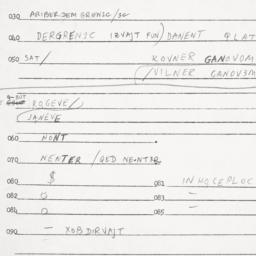 030 ARIBER DEM GRENIC/SG
040 DERGRENIC IZVAJT FUN) DANENT QLAT
050 SAT/ KOVNER GANOVOM
(/VILNER GANOV3M
KOGEVE/
JANEVE
060 NONT
070 NENTER/QED NENTER
080 $ 081 INHOCEPLOC
082 0 083 -
084 0 085 -
090 - XOBDIRVAJT